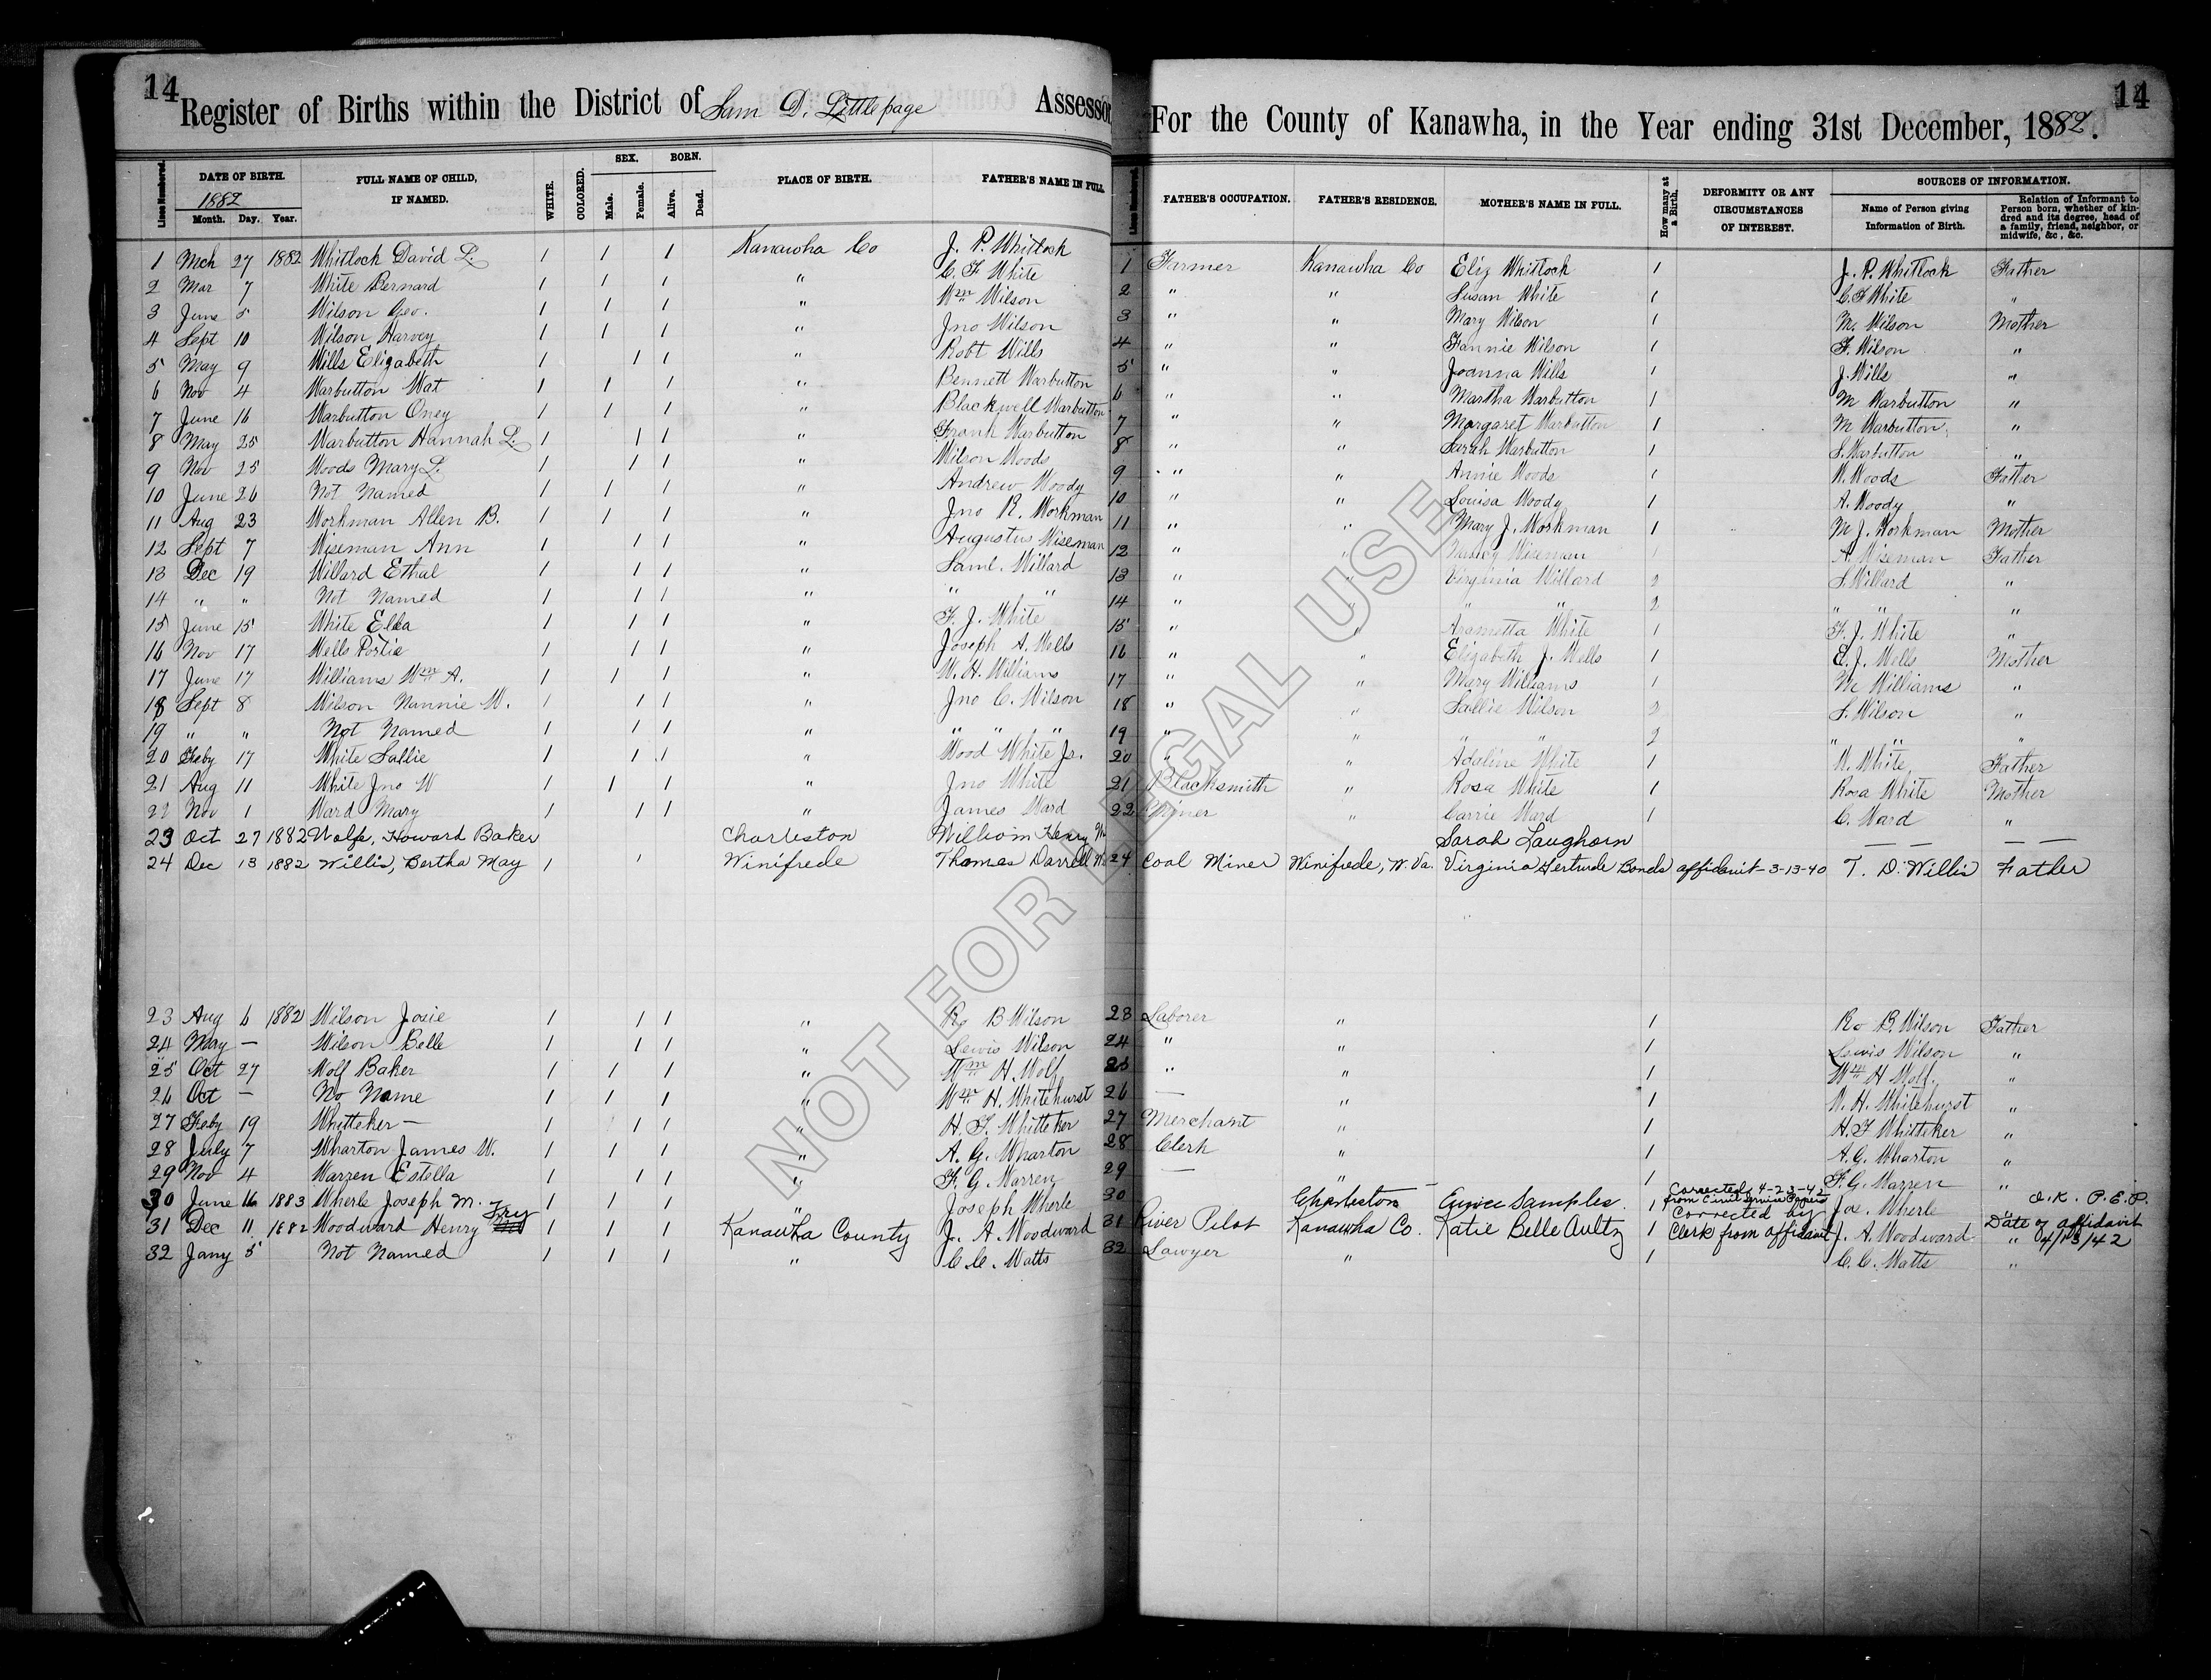 14
Register of Births within the District of Sam D. Littlepage Assessor
For the County of Kanawha, in the Year ending 31st December, 1882.
14
Lines Numbered. DATE OF BIRTH. 1882 Month. Day. Year. FULL NAME OF CHILD, IF NAMED. WHITE. COLORED. SEX. Male. Female. BORN. Alive. Dead. PLACE OF BIRTH. FATHER'S NAME IN FULL.
Lines Numbered. FATHER'S OCCUPATION. FATHER'S RESIDENCE. MOTHER'S NAME IN FULL. How many at a Birth. DEFORMITY OR ANY CIRCUMSTANCES OF INTEREST. SOURCES OF INFORMATION. Name of Person giving Information of Birth. Relation of Informant to Person born, whether of kindred and its degree, head of a family, friend, neighbor, or midwife, &c, &c.
1 Mch 27 1882 Whitlock David L. 1 1 1 Kanawha Co J. P. Whitlock 1 Farmer Kanawha Co Eliz Whitlock 1 J. P. Whitlock Father
2 Mar 7 White Bernard 1 1 1 " C. F White 2 " " Susan White 1 C. F White "
3 June 5 Wilson Geo. 1 1 1 " Wm Wilson 3 " " Mary Wilson 1 M. Wilson Mother
4 Sept 10 Wilson Harvey 1 1 1 " Jno Wilson 4 " " Fannie Wilson 1 F. Wilson "
5 May 9 Wills Elizabeth 1 1 1 " Robt Wills 5 " " Joanna Wills 1 J. Wills "
6 Nov 4 Warbutton Wat 1 1 1 " Bennett Warbutton 6 " " Martha Warbutton 1 M Warbutton "
7 June 16 Warbutton Oney 1 1 1 " Blackwell Warbutton 7 " " Margaret Warbutton 1 M Warbutton "
8 May 25 Warbutton Hannah L. 1 1 1 " Frank Warbutton 8 " " Sarah Warbutton 1 S. Warbutton "
9 Nov 25 Woods Mary L. 1 1 1 " Wilson Woods 9 " " Annie Woods 1 W. Woods Father
10 June 26 Not Named 1 1 1 " Andrew Woody 10 " " Louisa Woody 1 A. Woody "
11 Aug 23 Workman Allen B. 1 1 1 " Jno R. Workman 11 " " Mary J. Workman 1 M J. Workman Mother
12 Sept 7 Wiseman Ann 1 1 1 " Augustus Wiseman 12 " " Nancy Wiseman 1 A. Wiseman Father
13 Dec 19 Willard Ethal 1 1 1 " Saml. Willard 13 " " Virginia Willard 2 S. Willard "
14 " " Not Named 1 1 1 " " " 14 " " " " 2 " " "
15 June 15 White Ella 1 1 1 " F. J. White 15 " " Aramatta White 1 F. J. White "
16 Nov 17 Wells Portie 1 1 1 " Joseph A. Wells 16 " " Elizabeth J. Wells 1 E. J. Wells Mother
17 June 17 Williams Wm A. 1 1 1 " W. H. Williams 17 " " Mary Williams 1 M Williams "
18 Sept 8 Wilson Nannie W. 1 1 1 " Jno C. Wilson 18 " " Sallie Wilson 2 S. Wilson "
19 " " Not Named 1 1 1 " " " " 19 " " " " 2 " " "
20 Feby 17 White Sallie 1 1 1 " Wood White Jr. 20 " " Adaline White 1 W. White Father
21 Aug 11 White Jno W 1 1 1 " Jno White 21 Blacksmith " Rosa White 1 Rosa White Mother
22 Nov 1 Ward Mary 1 1 1 " James Ward 22 Miner " Carrie Ward 1 C. Ward "
23 Oct 27 1882 Wolfe, Howard Baker Charleston William Henry W Sarah Laughorn — —
24 Dec 13 1882 Willis, Bertha May 1 1 Winifrede Thomas Darrell W. 24 Coal Miner Winifrede, W. Va. Virginia Gertrude Bonds affidavit 3-13-40 T. D. Willis Father
23 Aug 6 1882 Wilson Josie 1 1 1 " Ro B Wilson 23 Laborer " 1 Ro B. Wilson Father
24 May — Wilson Belle 1 1 1 " Lewis Wilson 24 " " 1 Lewis Wilson "
25 Oct 27 Wolf Baker 1 1 1 " Wm H. Wolf 25 " " 1 Wm H Wolf. "
26 Oct — No Name 1 1 1 " Wm H. Whitehurst 26 — " 1 W. H. Whitehurst "
27 Feby 19 Whitteker — 1 1 1 " H. F. Whitteker 27 Merchant " 1 H. F Whitteker "
28 July 7 Wharton James W. 1 1 1 " A. G. Wharton 28 Clerk " 1 A. G. Wharton "
29 Nov 4 Warren Estella 1 1 1 " F. G. Warren 29 — " 1 F. G. Warren "
30 June 16 1883 Wherle Joseph M. 1 1 1 " Joseph Wherle 30 Charleston Eunice Samples 1 Corrected 4-23-42 from Civil Service Papers Jos. Wherle " O. K. P. E. P.
31 Dec 11 1882 Woodward Henry Fry 1 1 1 Kanawha County J. A. Woodward 31 River Pilot Kanawha Co. Katie Belle Aultz 1 Corrected by Clerk from affidavit J. A. Woodward " Date of affidavit 4/13/42
32 Jany 5 Not Named 1 1 1 " C. C. Watts 32 Lawyer " 1 C. C. Watts "
NOT FOR LEGAL USE